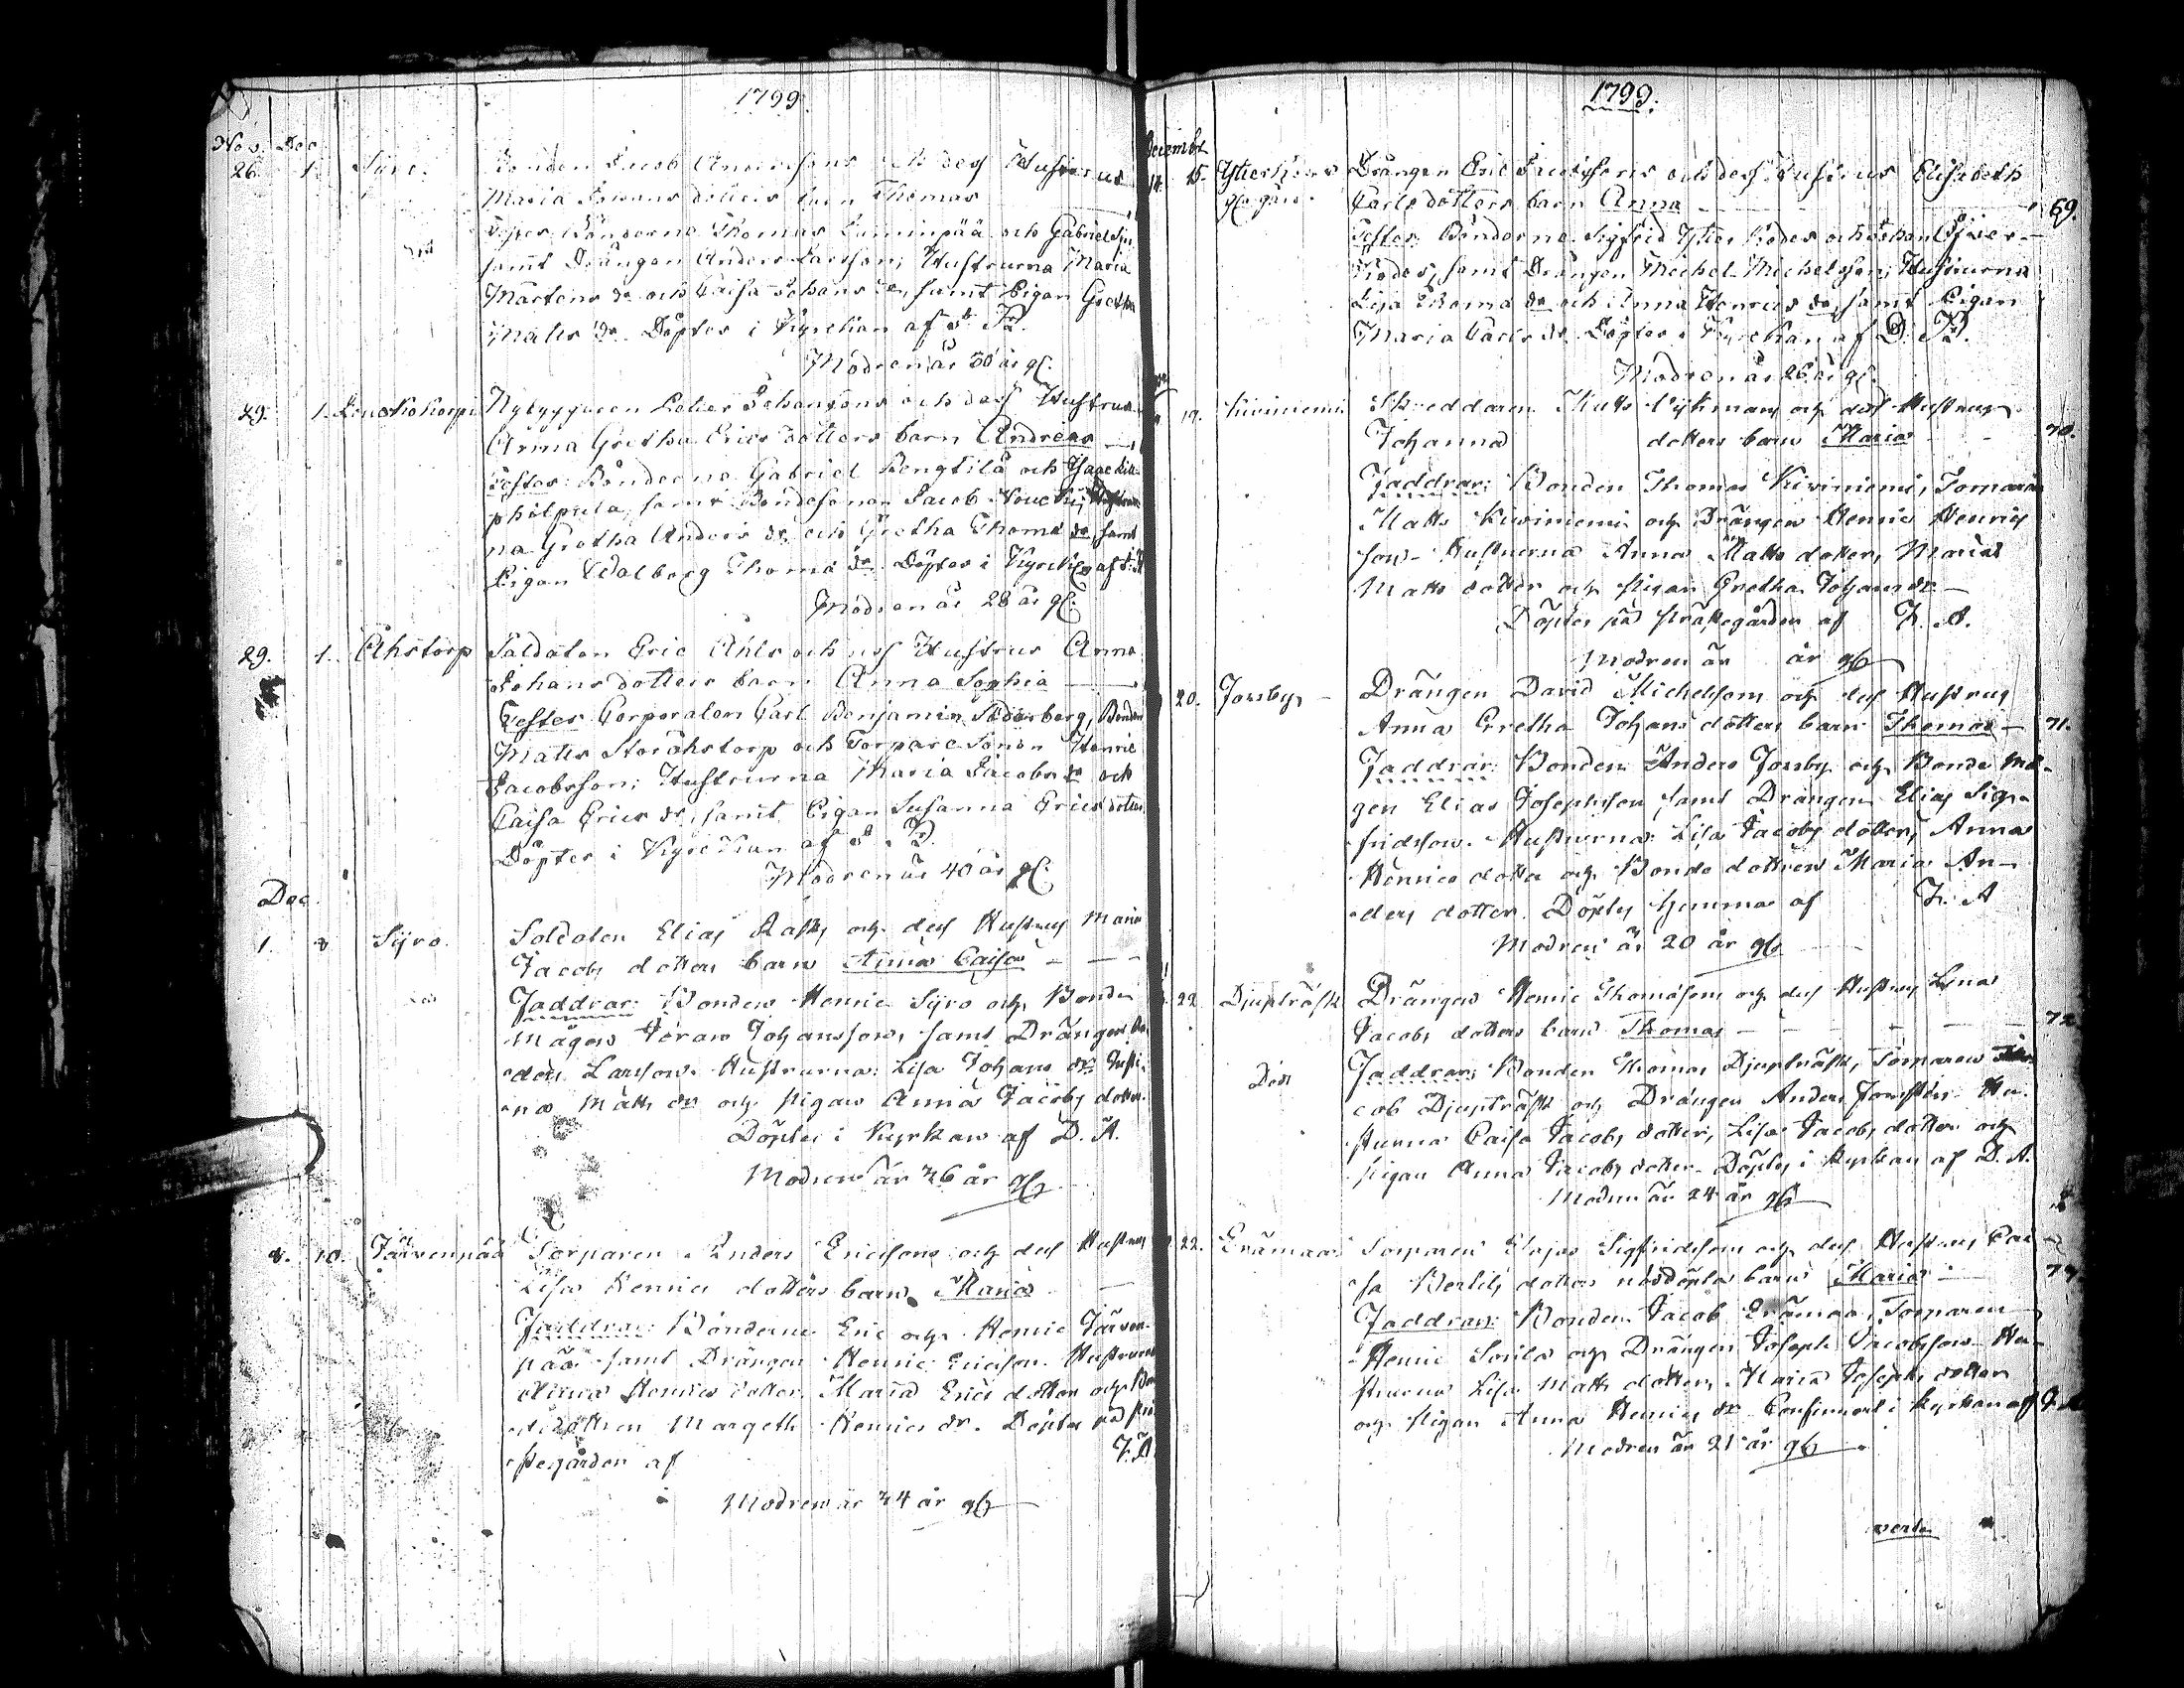 1799.
Nov. Dec.
26. 1. Syro. Bonden Jacob Anderssons och dess Hustrus
Maria dotters barn Thomas
Testes: Bönderne Thomas och Gabriel
samt Drängen Anders Larsson; Hustrurna Maria
Mårtens dr och Caisa Johans dr, samt Pigan Gretha
Matts dr. Döptes i Kyrckan af
Modren är 30 år gl.
29. 1. Nybyggaren Johanssons och dess Hustrus
Anna Gretha Erics dotters barn Andreas
Testes: Bönderne Gabriel Bengtilä och Isaac
samt Bondesonen Jacob
na Gretha Anders dr och Gretha Thoma dr, samt
Pigan Walborg Thoma dr. Döptes i Kyrckan af
Modren är 28 år gl.
29. 1. Åhstorp Soldaten Eric Åhls och dess Hustrus Anna
Johans dotters barn Anna Sophia
Testes Corporalen Carl Benjamin Söderberg, Bonden
Matts Storåhstorp och Torpare Sonen Henric
Jacobsson; Hustrurna Maria Jacobs dr och
Caisa Erics dr, samt Pigan Susanna Erics dotter
Döptes i Kyrckan af
Modren är 40 år gl.
Dec.
1. 8 Syro. Soldaten Elias Rasks och dess Hustrus Maria
Jacobs dotters barn Anna Caisa
Faddrar: Bonden Henric Syro och Bonde
mågen Göran Johansson, samt Drängen An
ders Larsson. Hustrurna: Lisa Johans dr
na Matts dr och pigan Anna Jacobs dotter.
Döptes i Kyrkan af D. A.
Modren är 36 år gl
8. 10. Järvenpää Torparen Anders Ericssons och dess Hustrus
Lisa Henrics dotters barn Maria
Faddrar: Bönderne Eric och Henric Järven
pää samt Drängen Henric Ericsson. Hustrurna
Henrics dotter, Maria Erics dotter och Bon
dedottren Margeth Henrics dr. Döptes på prä
stegården af F. A.
Modren är 34 år gl
1799.
Decembr.
14. 15. Ytterkors Drängen Eric Ericssons och dess Hustrus Elisabeth
Carls dotters barn Anna 69.
Testes: Bönderne Sigfrid Ytter och Johan Öfver
samt Drängen Michel Michelsson; Hustrurna
Lisa Thoma dr och Anna Henrics dr, samt Pigan
Maria Carls dr. Döptes i Kyrckan af
Modren är 26 år gl.
19. Kiviniemi Skreddaren Matts och dess Hustrus
Johanna dotters barn Maria 70.
Faddrar: Bonden Thomas Kiviniemi, Torparen
Matts Kiviniemi och Drängen Henric Henrics
son. Hustrurna Anna Matts dotter, Maria
Matts dotter och pigan Gretha Johans dr
Döptes på prästegården af F. A.
Modren är år gl
20. Jorsby Drängen David Michelssons och dess Hustrus
Anna Gretha Johans dotters barn Thomas 71.
Faddrar: Bonden Anders Jorsby och Bonde må
gen Elias Josephsson samt Drängen Elias Sig
fridsson. Hustrurna: Lisa Jacobs dotter, Anna
Henrics dotter och Bonde dottren Maria An
ders dotter. Döptes hemma af F. A
Modren är 20 år gl
22. Djupträsk Drängen Henric Thomassons och dess Hustrus Lena
Jacobs dotters barn Thomas 72
Död Faddrar: Bonden Thomas Djupträsk, Torparen Ja
cob Djupträsk och Drängen Anders Hu
strurna Caisa Jacobs dotter, Lisa Jacobs dotter och
pigan Anna Jacobs dotter. Döptes i kyrkan af D. A.
Modren är 24 år gl
22. Erämaa Torparen Sigfridssons och dess Hustrus Cai
sa Bertils dotters nöddöpta barn Maria
Faddrar: Bonden Jacob Erämaa, Torparen
Henric Sorila och Drängen Joseph Jacobsson. Hu
strurna Lisa Matts dotter, Maria Josephs dotter
och pigan Anna Henrics dr. Confirmerat i kyrkan af
Modren är 21 år gl
verte